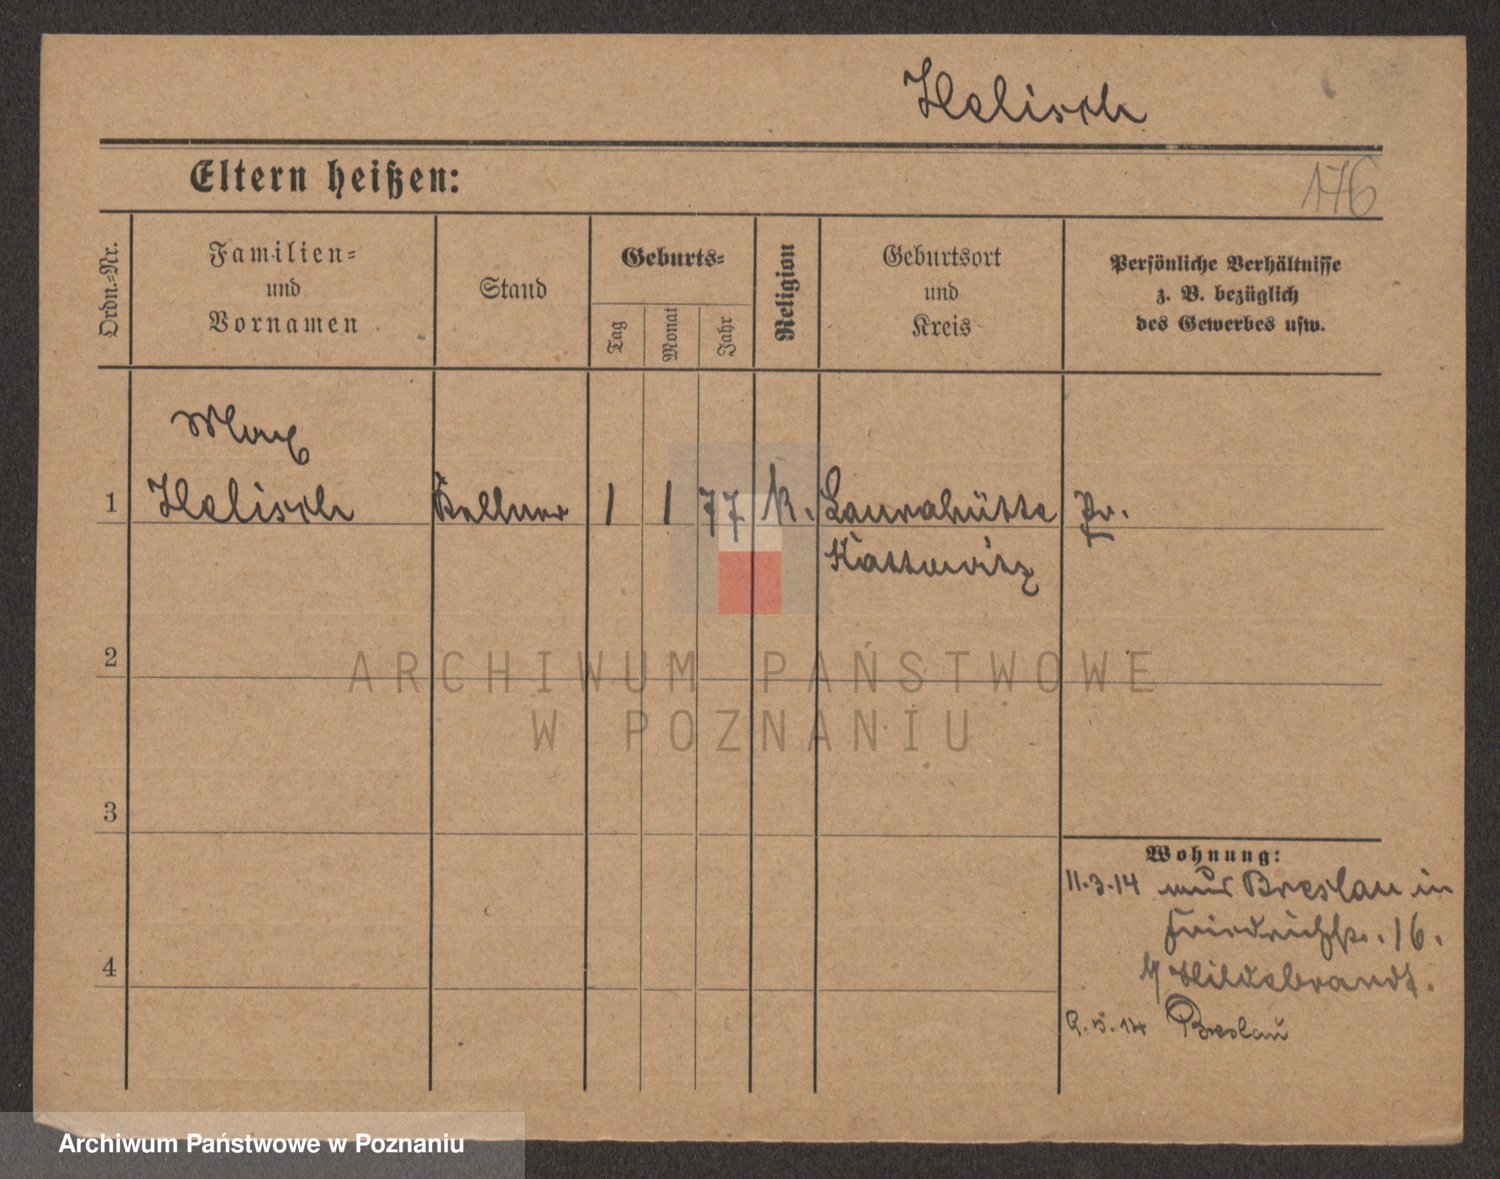 Helisch
Eltern heißen:
176
Ordn.-Nr.
Familien-
und
Vornamen
Stand
Geburts-
Tag
Monat
Jahr
Religion
Geburtsort
und
Kreis
Persönliche Verhältnisse
z. B. bezüglich
des Gewerbes usw.
Max
1 Helisch Kellner 1 1 77 k. Laurahütte Pr.
Kattowitz
2
ARCHIWUM PAŃSTWOWE
W POZNANIU
3
Wohnung:
11.3.14 Breslau in
Friedrichstr. 16.
4
b/ Hildebrandt.
9.5.14 Breslau
Archiwum Państwowe w Poznaniu